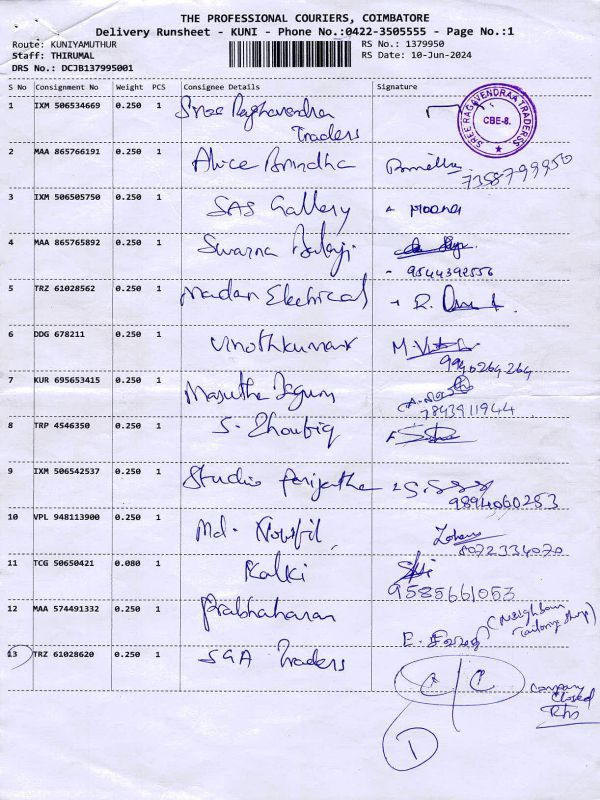 THE PROFESSIONAL COURIERS, COIMBATORE
Delivery Runsheet - KUNI - Phone No.:0422-3505555 - Page No.:1
Route: KUNIYAMUTHUR
Staff: THIRUMAL
DRS No.: DCJB137995001
RS No.: 1379950
RS Date: 10-Jun-2024
S No Consignment No Weight PCS Consignee Details Signature
1 IXM 506534669 0.250 1 Sree Raghavendra
Traders
SREE RAGAVENDRAA TRADERSS
CBE-8.
2 MAA 865766191 0.250 1
7358799950
3 IXM 506505750 0.250 1 SAS Gallery
4 MAA 865765892 0.250 1 Swarna Balaji
9544392556
5 TRZ 61028562 0.250 1 Madan Electrical
6 DDG 678211 0.250 1 Vinothkumar
9940264264
7 KUR 695653415 0.250 1
7843911944
8 TRP 4546350 0.250 1
9 IXM 506542537 0.250 1 Studio
9894060253
10 VPL 948113900 0.250 1 Md.
8072334070
11 TCG 50650421 0.080 1 Kalki
9585661053
12 MAA 574491332 0.250 1 Prabhaharan
(Neighbour
Tailoring Shop)
13 TRZ 61028620 0.250 1 SGA Traders
Company
Closed
1